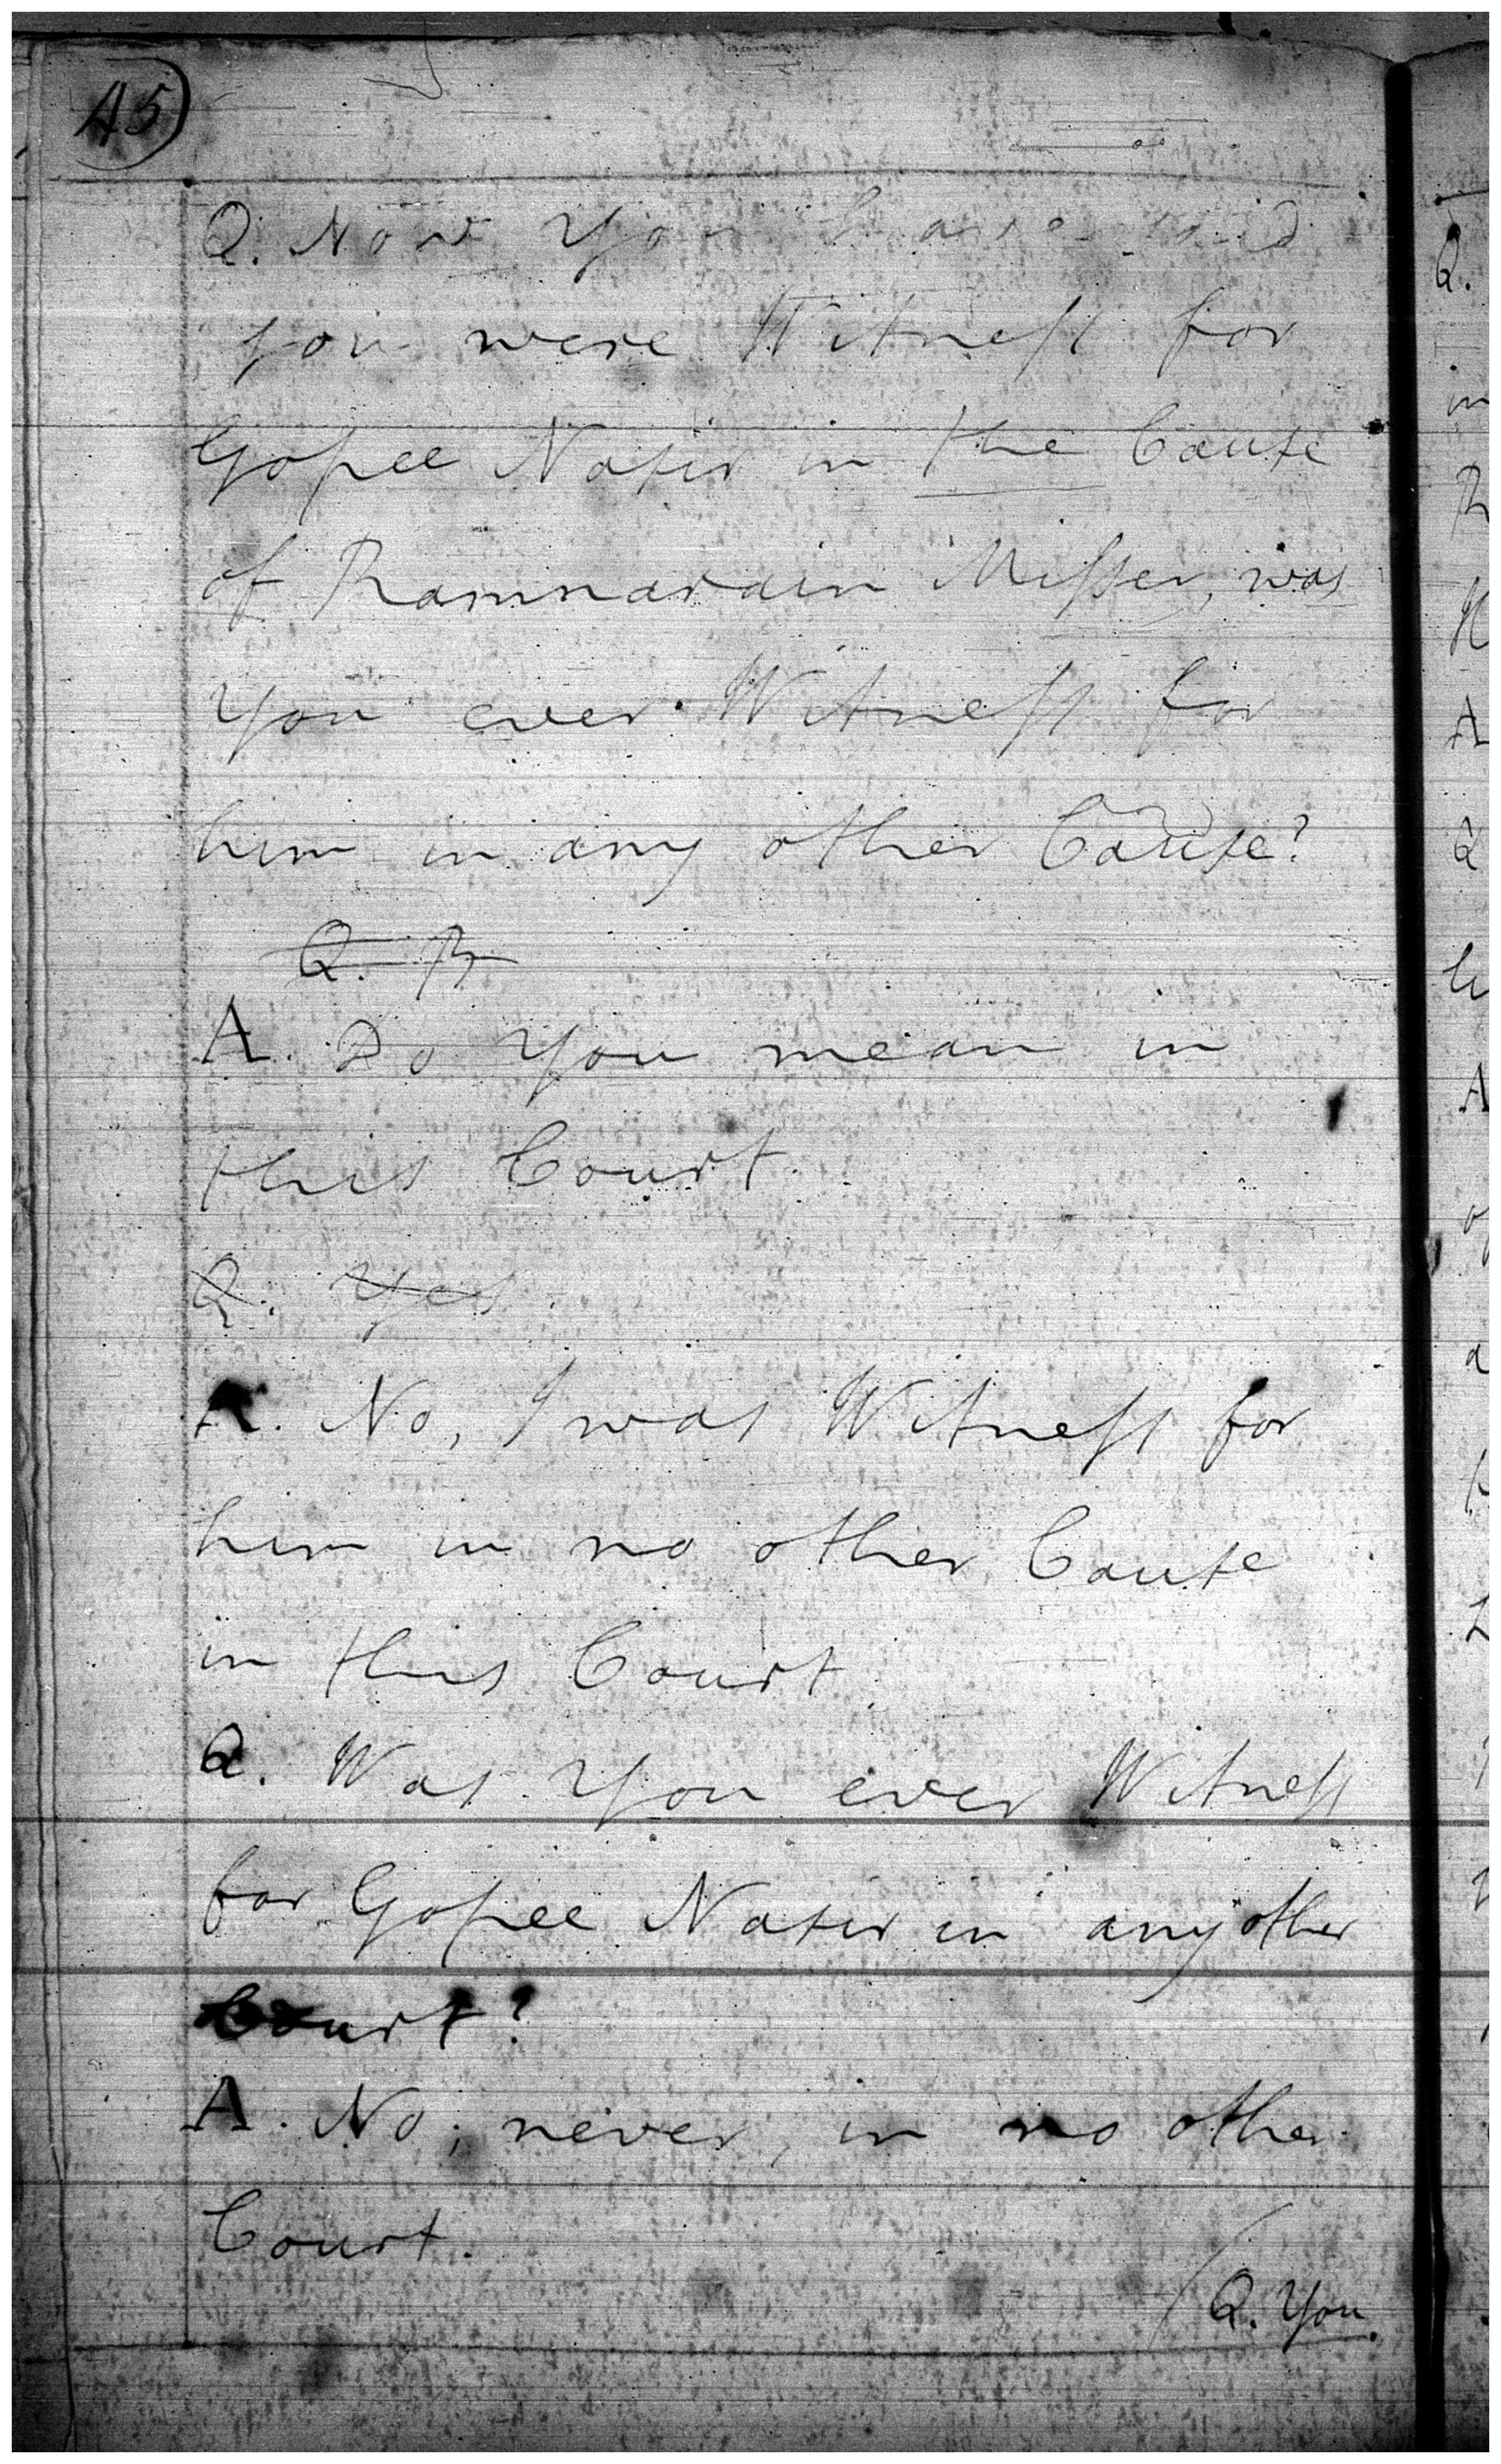 45
Q. Now you have said
you were Witneſs for
Gopee Nasir in the Cause
of Ramnarain Miſser, was
you ever Witneſs for
him in any other Cause?
Q.
A. Do you mean in
this Court.
Q. Yes.
A. No, I was Witneſs for
him in no other Cause
in this Court.
Q. Was you ever Witneſs
for Gopee Nasir in any other
Court?
A. No; never, in no other
Court.
Q. You